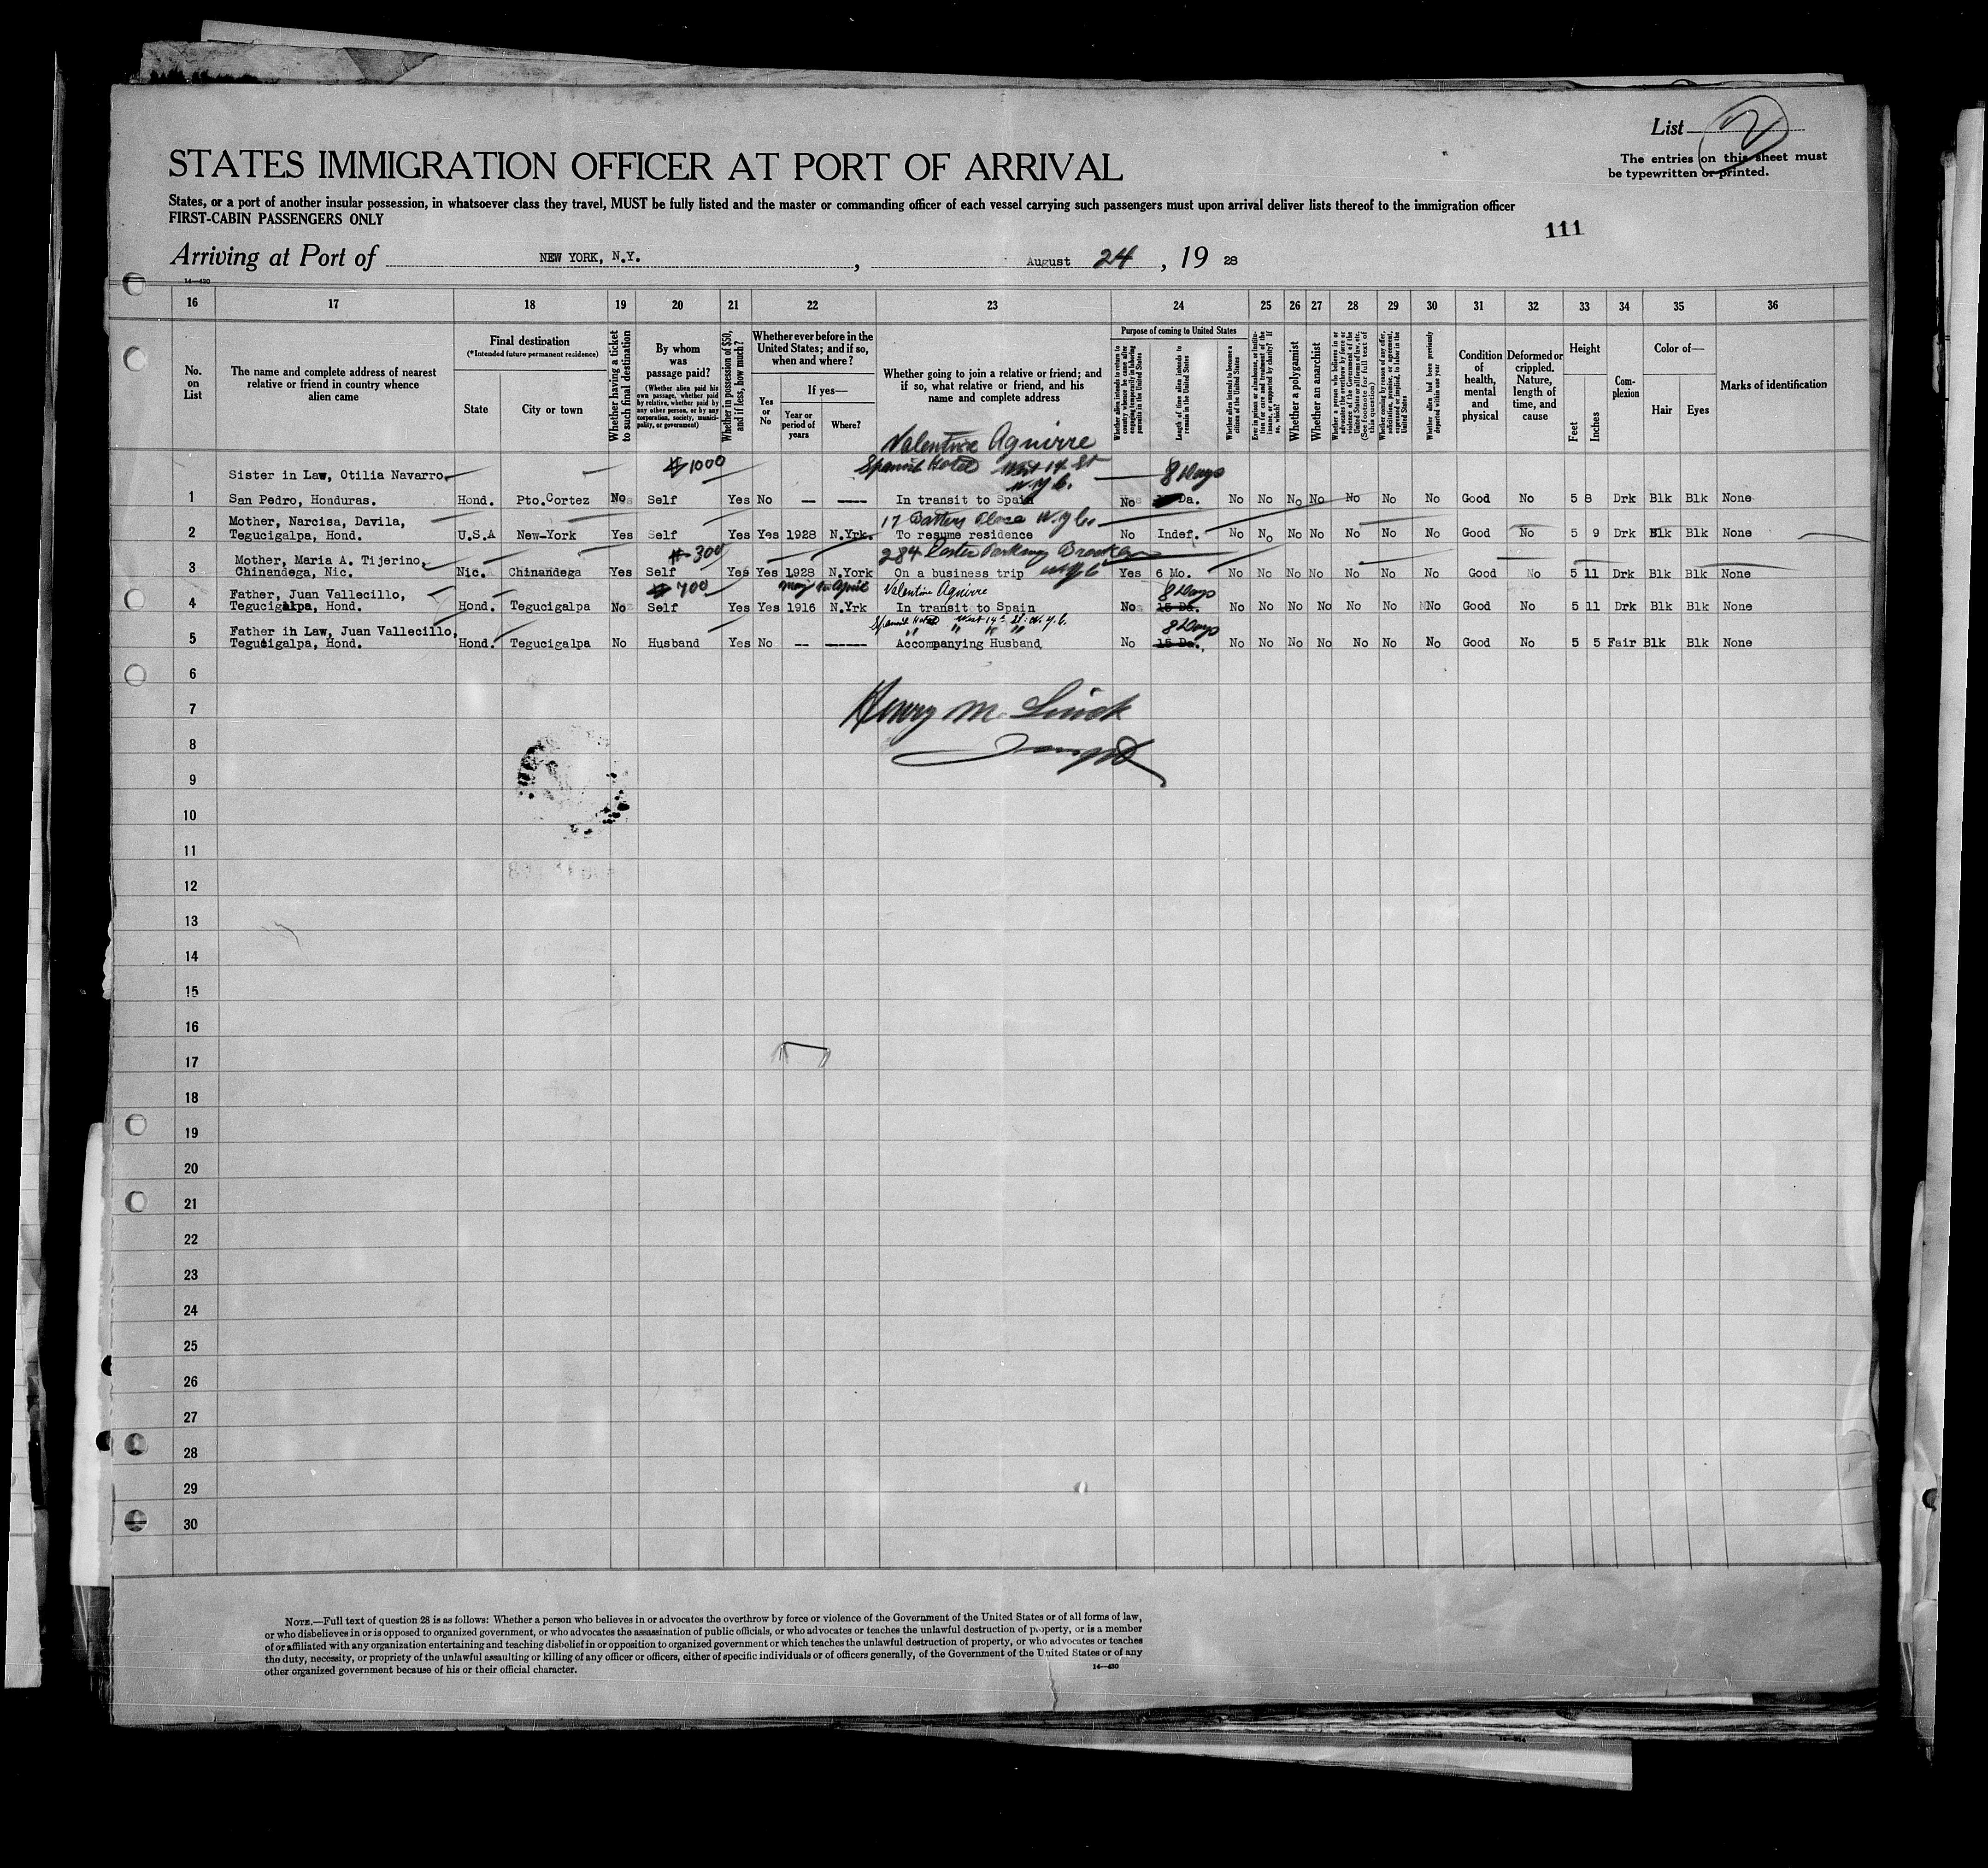 List 2
STATES IMMIGRATION OFFICER AT PORT OF ARRIVAL
The entries on this sheet must
be typewritten or printed.
States, or a port of another insular possession, in whatsoever class they travel, MUST be fully listed and the master or commanding officer of each vessel carrying such passengers must upon arrival deliver lists thereof to the immigration officer
FIRST-CABIN PASSENGERS ONLY
111
Arriving at Port of NEW YORK, N.Y. , August 24 , 19 28
14—430
16 17 18 19 20 21 22 23 24 25 26 27 28 29 30 31 32 33 34 35 36
No. on List
The name and complete address of nearest relative or friend in country whence alien came
Final destination
(*Intended future permanent residence)
State
City or town
Whether having a ticket to such final destination
By whom was passage paid?
(Whether alien paid his own passage, whether paid by relative, whether paid by any other person, or by any corporation, society, municipality, or government)
Whether in possession of $50, and if less, how much?
Whether ever before in the United States; and if so, when and where?
Yes or No
If yes—
Year or period of years
Where?
Whether going to join a relative or friend; and if so, what relative or friend, and his name and complete address
Purpose of coming to United States
Whether alien intends to return to country whence he came after engaging temporarily in laboring pursuits in the United States
Length of time alien intends to remain in the United States
Whether alien intends to become a citizen of the United States
Ever in prison or almshouse, or institution for care and treatment of the insane, or supported by charity? If so, which?
Whether a polygamist
Whether an anarchist
(See footnote for full text of this question)
Whether coming by reason of any offer, solicitation, promise, or agreement, expressed or implied, to labor in the United States
Whether alien had been previously deported within one year
Condition of health, mental and physical
Deformed or crippled. Nature, length of time, and cause
Height
Feet
Inches
Complexion
Color of—
Hair
Eyes
Marks of identification
Valentine Aguirre
Sister in Law, Otilia Navarro, $1000 Spanish Hotel West 14 St N.Y.C. 8 Days
1 San Pedro, Honduras. Hond. Pto.Cortez No Self Yes No — — In transit to Spain No Da. No No No No No No No Good No 5 8 Drk Blk Blk None
Mother, Narcisa, Davila, 17 Battery Place N.Y.C.
2 Tegucigalpa, Hond. U.S.A New-York Yes Self Yes Yes 1928 N.Yrk. To resume residence No Indef. No No No No No No No Good No 5 9 Drk Blk Blk None
Mother, Maria A. Tijerino, $300 284 Easter Parkway N.Y.C
3 Chinandega, Nic. Nic. Chinandega Yes Self Yes Yes 1928 N.York On a business trip Yes 6 Mo. No No No No No No No Good No 5 11 Drk Blk Blk None
Father, Juan Vallecillo, $700 April Valentine Aguirre 8 Days
4 Tegucigalpa, Hond. Hond. Tegucigalpa No Self Yes Yes 1916 N.Yrk In transit to Spain No 15 Da. No No No No No No No Good No 5 11 Drk Blk Blk None
Spanish Hotel West 14th St. N.Y.C.
Father in Law, Juan Vallecillo, " " " " 8 Days
5 Tegucigalpa, Hond. Hond. Tegucigalpa No Husband Yes No -- ---- Accompanying Husband No 15 Da. No No No No No No No Good No 5 5 Fair Blk Blk None
6
7 Henry M.
8
9
10
11
12
13
14
15
16
17
18
19
20
21
22
23
24
25
26
27
28
29
30
NOTE.—Full text of question 28 is as follows: Whether a person who believes in or advocates the overthrow by force or violence of the Government of the United States or of all forms of law,
or who disbelieves in or is opposed to organized government, or who advocates the assassination of public officials, or who advocates or teaches the unlawful destruction of property, or is a member
of or affiliated with any organization entertaining and teaching disbelief in or opposition to organized government or which teaches the unlawful destruction of property, or who advocates or teaches
the duty, necessity, or propriety of the unlawful assaulting or killing of any officer or officers, either of specific individuals or of officers generally, of the Government of the United States or of any
other organized government because of his or their official character.
14—430